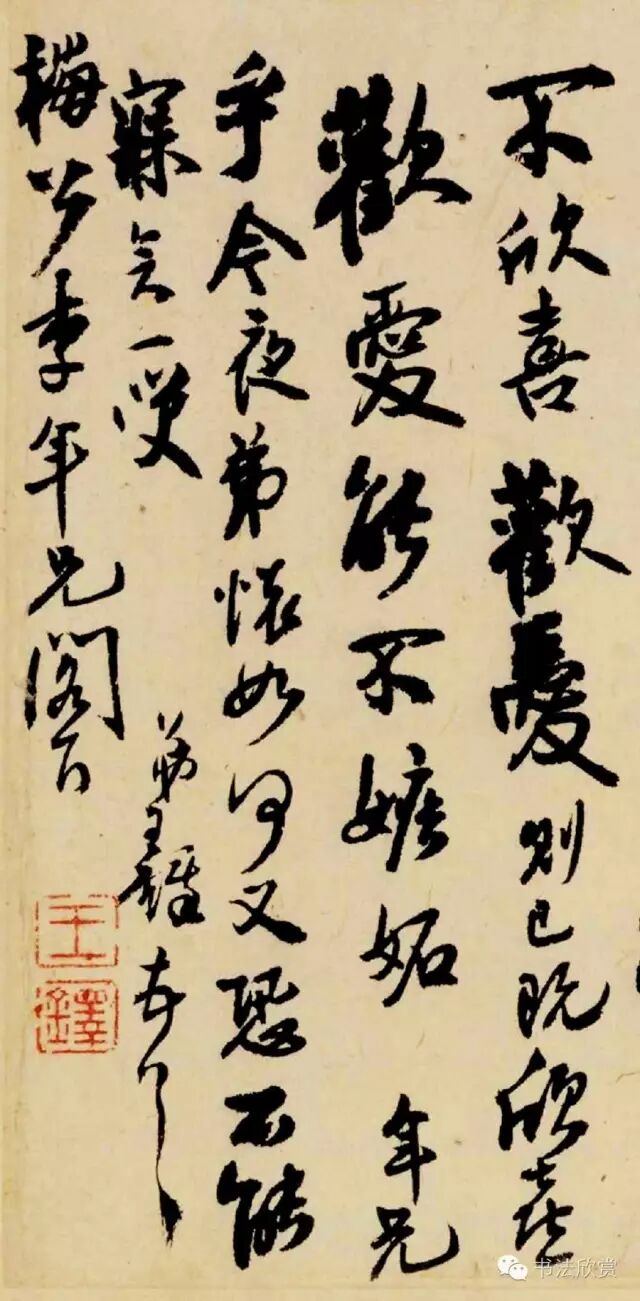 不欣喜歡愛則已既欣喜
歡愛能不嫉妬年兄
乎今夜弟懷如何又恐不能
寐矣一噱
弟王鐸頓首
梅公李年兄閣下
王鐸
书法欣赏